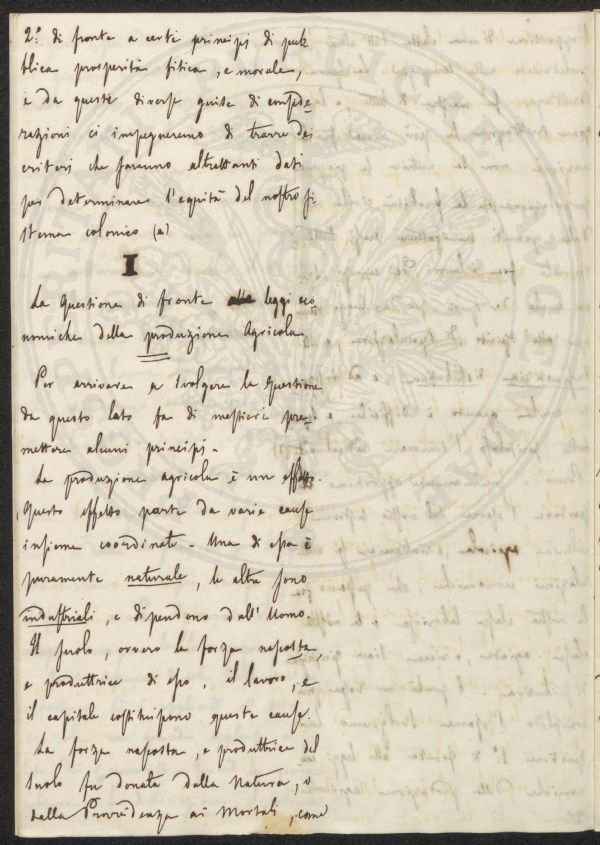 2.° di fronte a certi principj di pub-
blica prosperità fisica, e morale,
e da queste diverse guise di conside-
razioni ci impegneremo di trarre dei
criteri che faranno altrettanti dati
per determinare l'equità del nostro si-
stema colonico (a)
I
La Questione di fronte alle leggi eco-
nomiche della produzione Agricola
Per arrivare a svolgere la Questione
da questo lato fa di mestieri pre-
mettere alcuni principj -
La produzione agricola è un effetto.
Questo effetto parte da varie cause
insieme coordinate - Una di esse è
puramente naturale, le altre sono
industriali, e dipendono dall'Uomo.
Il suolo, ovvero la forza nascosta,
e produttrice di esso, il lavoro, e
il capitale costituiscono queste cause.
La forza nascosta, e produttrice del
suolo fu donata dalla Natura, o
dalla Provvidenza ai Mortali, come
agricola